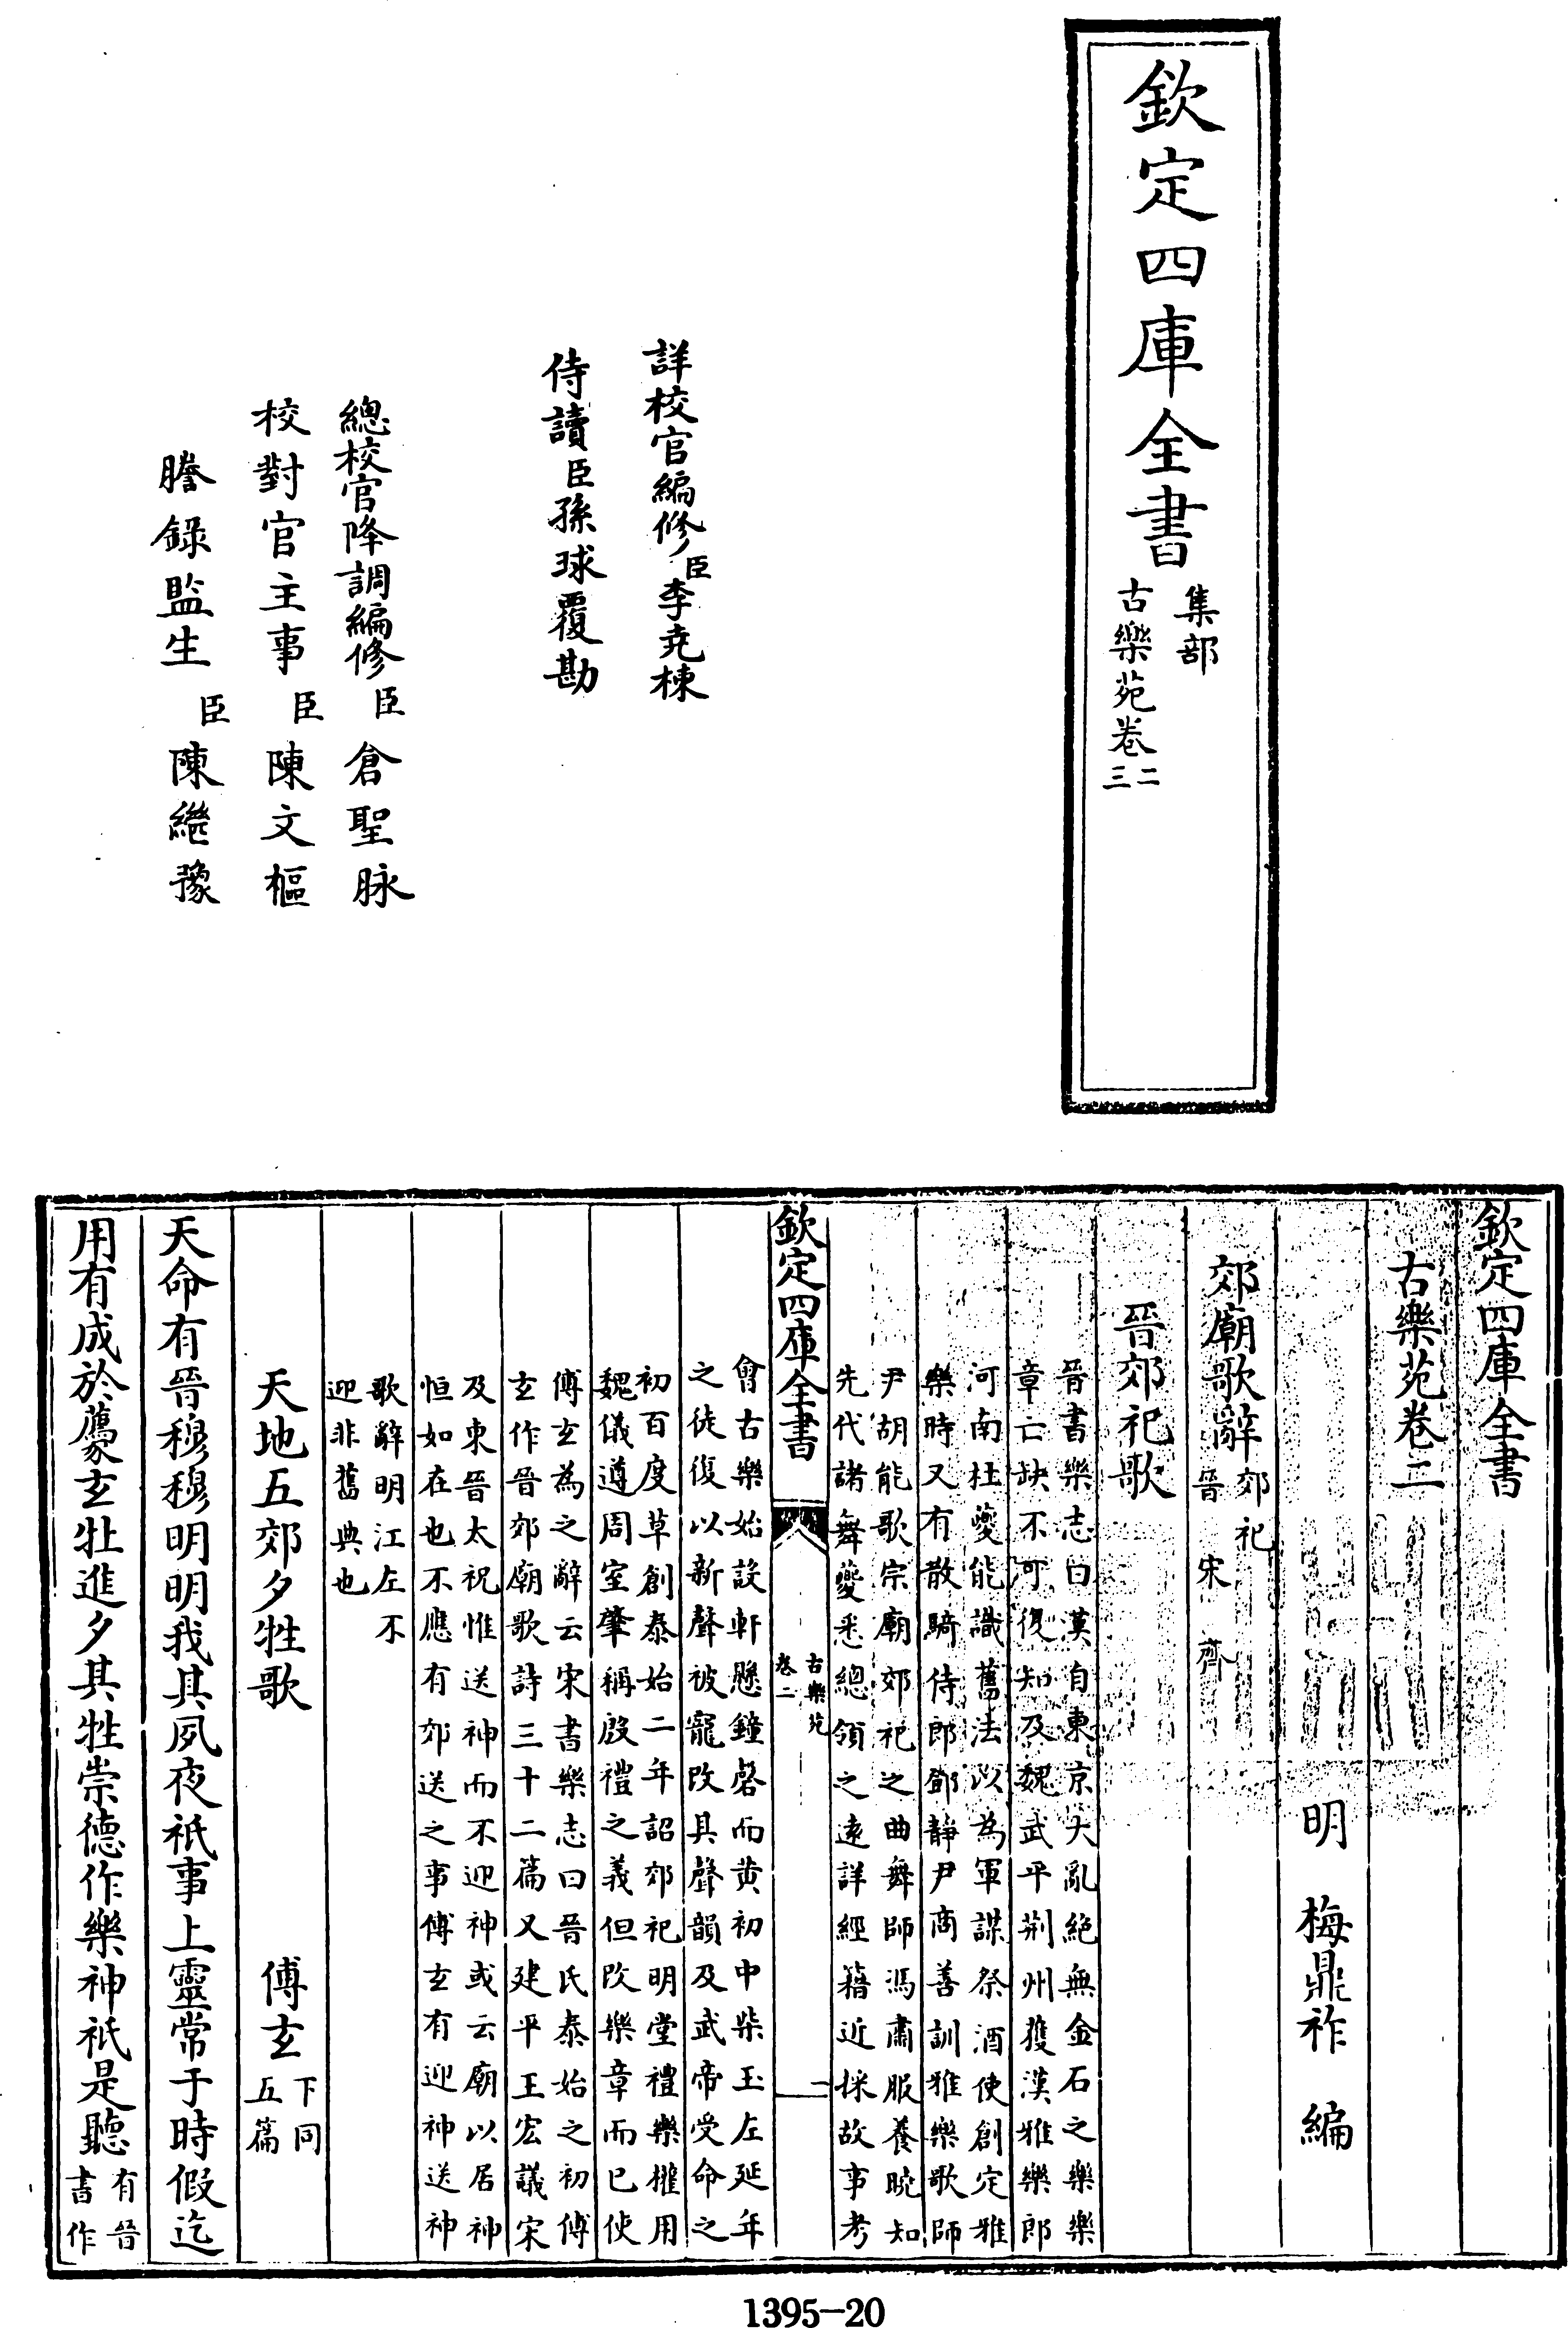 欽定四庫全書
集部
古樂苑卷二三
詳校官編修臣李尭棟
侍讀臣孫球覆勘
總校官降調編修臣倉聖脉
校對官主事臣陳文樞
謄錄監生臣陳繼豫
欽定四庫全書
古樂苑卷二
明 梅鼎祚 編
郊廟歌辭
郊祀
晉 宋 齊
晉郊祀歌
晉書樂志曰漢自東京大亂絶無金石之樂樂
章亡缺不可復知及魏武平荆州獲漢雅樂郎
河南杜夔能識舊法以為軍謀祭酒使創定雅
樂時又有散騎侍郎鄧靜尹商善訓雅樂歌師
尹胡能歌宗廟郊祀之曲舞師馮肅服養晩知
先代諸舞夔悉總領之逺詳經籍近採故事考
欽定四庫全書
古樂苑
卷二
一
會古樂始設軒懸鐘磬而黄初中柴玉左延年
之徒復以新聲被寵改其聲韻及武帝受命之
初百度草創泰始二年詔郊祀明堂禮樂權用
魏儀遵周室肇稱殷禮之義但改樂章而已使
傅玄為之辭云宋書樂志曰晉氏泰始之初傅
玄作晉郊廟歌詩三十二篇又建平王宏議宋
及東晉太祝惟送神而不迎神或云廟以居神
恒如在也不應有郊送之事傅玄有迎神送神
歌辭明江左不
迎非舊典也
天地五郊夕牲歌 傅玄
下同
五篇
天命有晉穆穆明明我其夙夜祇事上靈常于時假迄
用有成於薦玄牡進夕其牲崇德作樂神祇是聽
有晉
書作
1395-20